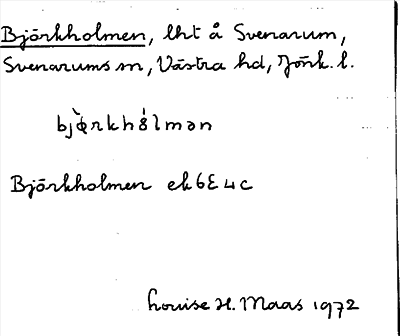 Björkholmen, lht å Svenarum,
Svenarums sn, Västra hd, Jönk. l.
bjø̀rkhólmən
Björkholmen ek 6E 4c
Louise H. Maas 1972